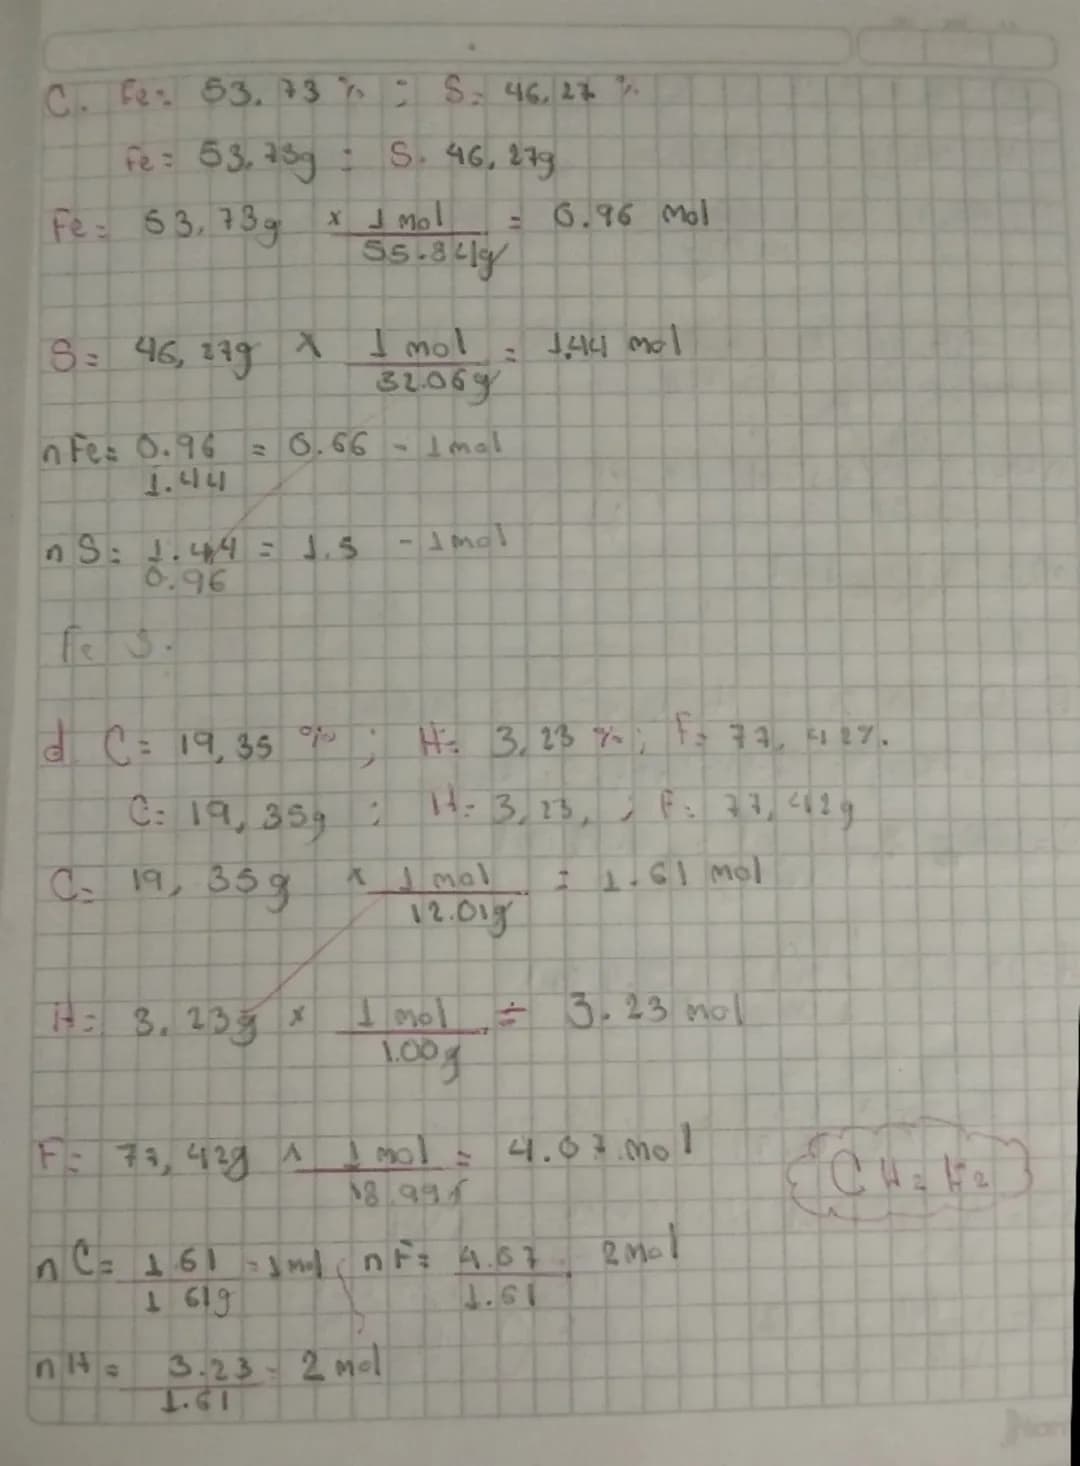 C. Fe= 53.73 % ; S= 46,27 %
Fe= 53,73g ; S. 46,27g
Fe= 53,73g x 1 mol / 55.84g = 0.96 mol
S= 46,27g x 1 mol / 32.06g = 1.44 mol
n Fe= 0.96 / 1.44 = 0.66 - 1 mol
n S= 1.44 / 0.96 = 1.5 - 1 mol
Fe S.
d C= 19,35 % ; H= 3,23 % ; F= 77,42%.
C= 19,35g ; H= 3,23, ; F= 77,42g
C= 19,35g x 1 mol / 12.01g = 1.61 mol
H= 3.23g x 1 mol / 1.00g = 3.23 mol
F= 77,42g x 1 mol / 18.99 = 4.07 mol
CH2 F2
n C= 1.61 / 1 61g = 1 mol n F= 4.07 / 1.61 2 mol
n H= 3.23 / 1.61 - 2 mol